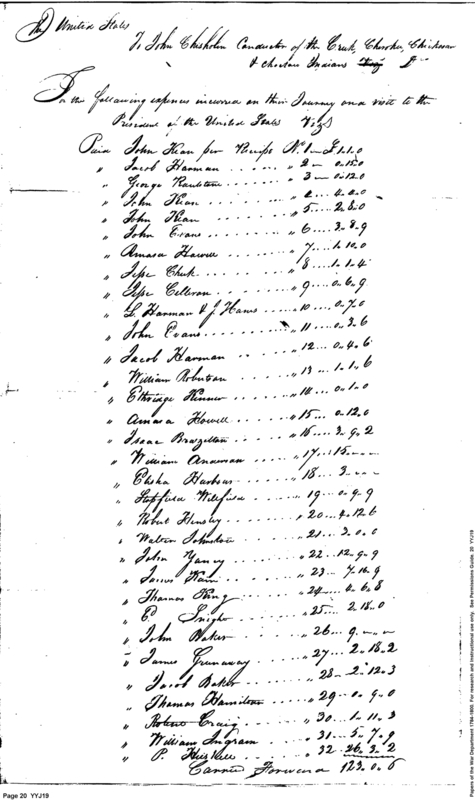 The United States
To John Chisholm Conductor of the Creek, Cherokee, Chickasaw
& Choctaw Indians Dr
For the following expences incurred on their Journey on a visit to the
President of the United States Vizt
Paid John Kean per Receipt No. 1 — £ 1..1..0
" Jacob Harman ..... " 2 — 0..15..0
" George Raulstone ..... " 3 — 0..12..0
" John Kean ..... " 4... 4..0..0
" John Kean ..... " 5... 2..8..0
" John Evans ..... " 6... 3..8..9
" Amasa Howell ..... " 7... 1..10..0
" Jesse Cheek ..... " 8... 1..1..4
" Jesse ..... " 9... 0..6..9
" L. Harman & J. Haws ..... 10... 0..7..0
" John Evans ..... " 11... 0..3..6
" Jacob Harman ..... 12... 0..4..6
" William Robertson ..... " 13... 1..1..6
" Ethridge ..... " 14... 0..1..0
" Amasa Howell ..... " 15... 0..12..0
" Isaac Brazelton ..... " 16... 3..9..2
" William Anderson ..... " 17... 15..—..—
" Elisha ..... " 18... 3..—..—
" ..... " 19... 0..9..9
" Robert Hensley ..... " 20... 4..12..6
" Walter Johnston ..... " 21... 3..0..0
" John Yancy ..... " 22... 12..9..9
" James ..... " 23... 7..16..9
" Thomas King ..... " 24... 4..6..8
" ..... " 25... 2..18..0
" John Baker ..... " 26... 9..—..—
" James Greenaway ..... " 27... 2..18..2
" Jacob Baker ..... " 28... 2..12..3
" Thomas Hamilton ..... " 29... 0..9..0
" Robert Craig ..... " 30... 1..11..3
" William Ingram ..... " 31... 5..7..9
" P. Heiskell ..... " 32 26..3..2
Carried Forward 123..0..6
Page 20 YYJ19
Papers of the War Department 1784-1800. For research and instructional use only. See Permissions Guide. 20 YYJ19